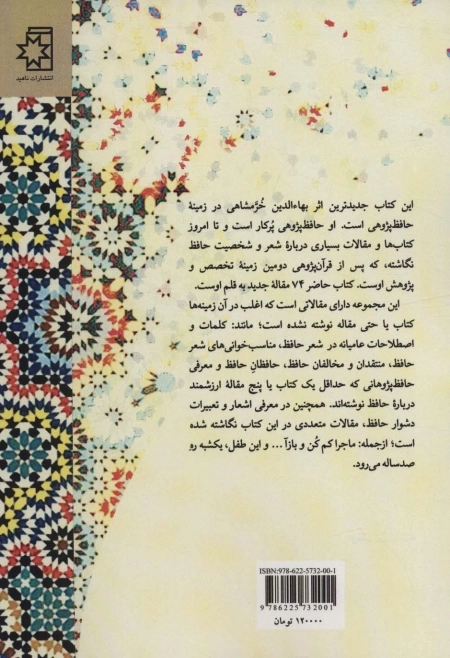 انتشارات ناهید
این کتاب جدیدترین اثر بهاءالدین خُرّمشاهی در زمینهٔ
حافظ‌پژوهی است. او حافظ‌پژوهی پُرکار است و تا امروز
کتاب‌ها و مقالات بسیاری دربارهٔ شعر و شخصیت حافظ
نگاشته، که پس از قرآن‌پژوهی دومین زمینهٔ تخصص و
پژوهش اوست. کتاب حاضر ۷۴ مقالهٔ جدید به قلم اوست.
این مجموعه دارای مقالاتی است که اغلب در آن زمینه‌ها
کتاب یا حتی مقاله نوشته نشده است؛ مانند: کلمات و
اصطلاحات عامیانه در شعر حافظ، مناسب‌خوانی‌های شعر
حافظ، منتقدان و مخالفان حافظ، حافظانِ حافظ و معرفی
حافظ‌پژوهانی که حداقل یک کتاب یا پنج مقالهٔ ارزشمند
دربارهٔ حافظ نوشته‌اند. همچنین در معرفی اشعار و تعبیرات
دشوار حافظ، مقالات متعددی در این کتاب نگاشته شده
است؛ ازجمله: ماجرا کم کُن و بازآ... و این طفل، یکشبه رهِ
صدساله می‌رود.
ISBN:978-622-5732-00-1
9 786225 732001
۱۲۰۰۰۰ تومان